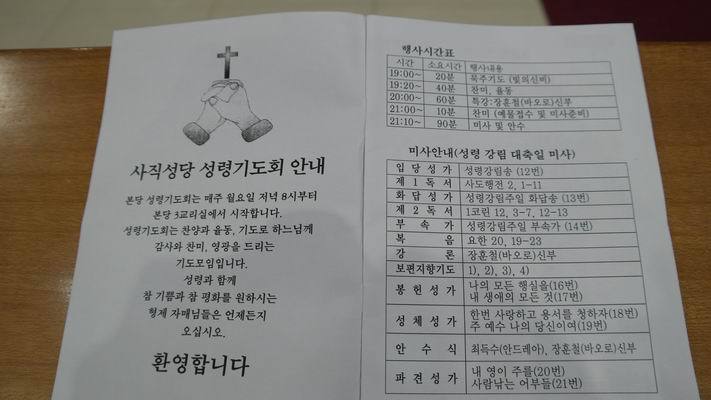 사직성당 성령기도회 안내
본당 성령기도회는 매주 월요일 저녁 8시부터
본당 3교리실에서 시작합니다.
성령기도회는 찬양과 율동, 기도로 하느님께
감사와 찬미, 영광을 드리는
기도모임입니다.
성령과 함께
참 기쁨과 참 평화를 원하시는
형제 자매님들은 언제든지
오십시오.
환영합니다
행사시간표
시간 소요시간 행사내용
19:00~ 20분 묵주기도 (빛의신비)
19:20~ 40분 찬미, 율동
20:00~ 60분 특강:장훈철(바오로)신부
21:00~ 10분 찬미 (예물접수 및 미사준비)
21:10~ 90분 미사 및 안수
미사안내(성령 강림 대축일 미사)
입당성가 성령강림송 (12번)
제1독서 사도행전 2, 1-11
화답성가 성령강림주일 화답송 (13번)
제2독서 1코린 12, 3-7, 12-13
부속가 성령강림주일 부속가 (14번)
복음 요한 20, 19-23
강론 장훈철(바오로)신부
보편지향기도 1), 2), 3), 4)
봉헌성가 나의 모든 행실을(16번)
내 생애의 모든 것(17번)
성체성가 한번 사랑하고 용서를 청하자(18번)
주 예수 나의 당신이여(19번)
안수식 최득수(안드레아), 장훈철(바오로)신부
파견성가 내 영이 주를(20번)
사람낚는 어부들(21번)